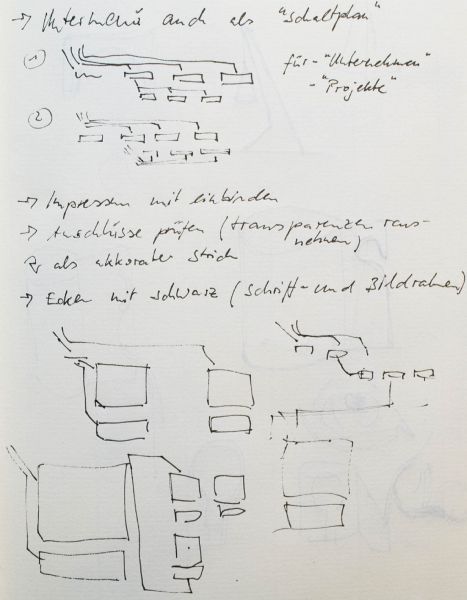 → Untermenü auch als "Schaltplan"
① für - "Unternehmen"
- "Projekte"
②
→ Impressum mit einbinden
→ Anschlüsse prüfen (transparenzen raus-
nehmen)
als akkorater Strich
→ Ecken mit schwarz (Schrift- und Bildrahmen)